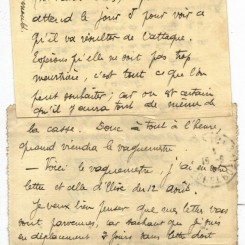 attend le jour J pour voir ce
qu'il va résulter de l'attaque.
Espérons qu'elle ne sont pas trop
meurtrière, c'est tout ce que l'on
peut souhaiter; car on est certain
qu'il y aura tout de même de
la casse. Donc à tout à l'heure,
quand viendra le vaguemestre
— Voici le vaguemestre. j'ai
lettre et celle d'Élise du 12 août.
Je veux bien penser que mes lettres vous
sont parvenues, car sachant que j'
en déplacement 2 jours sans lettre doit